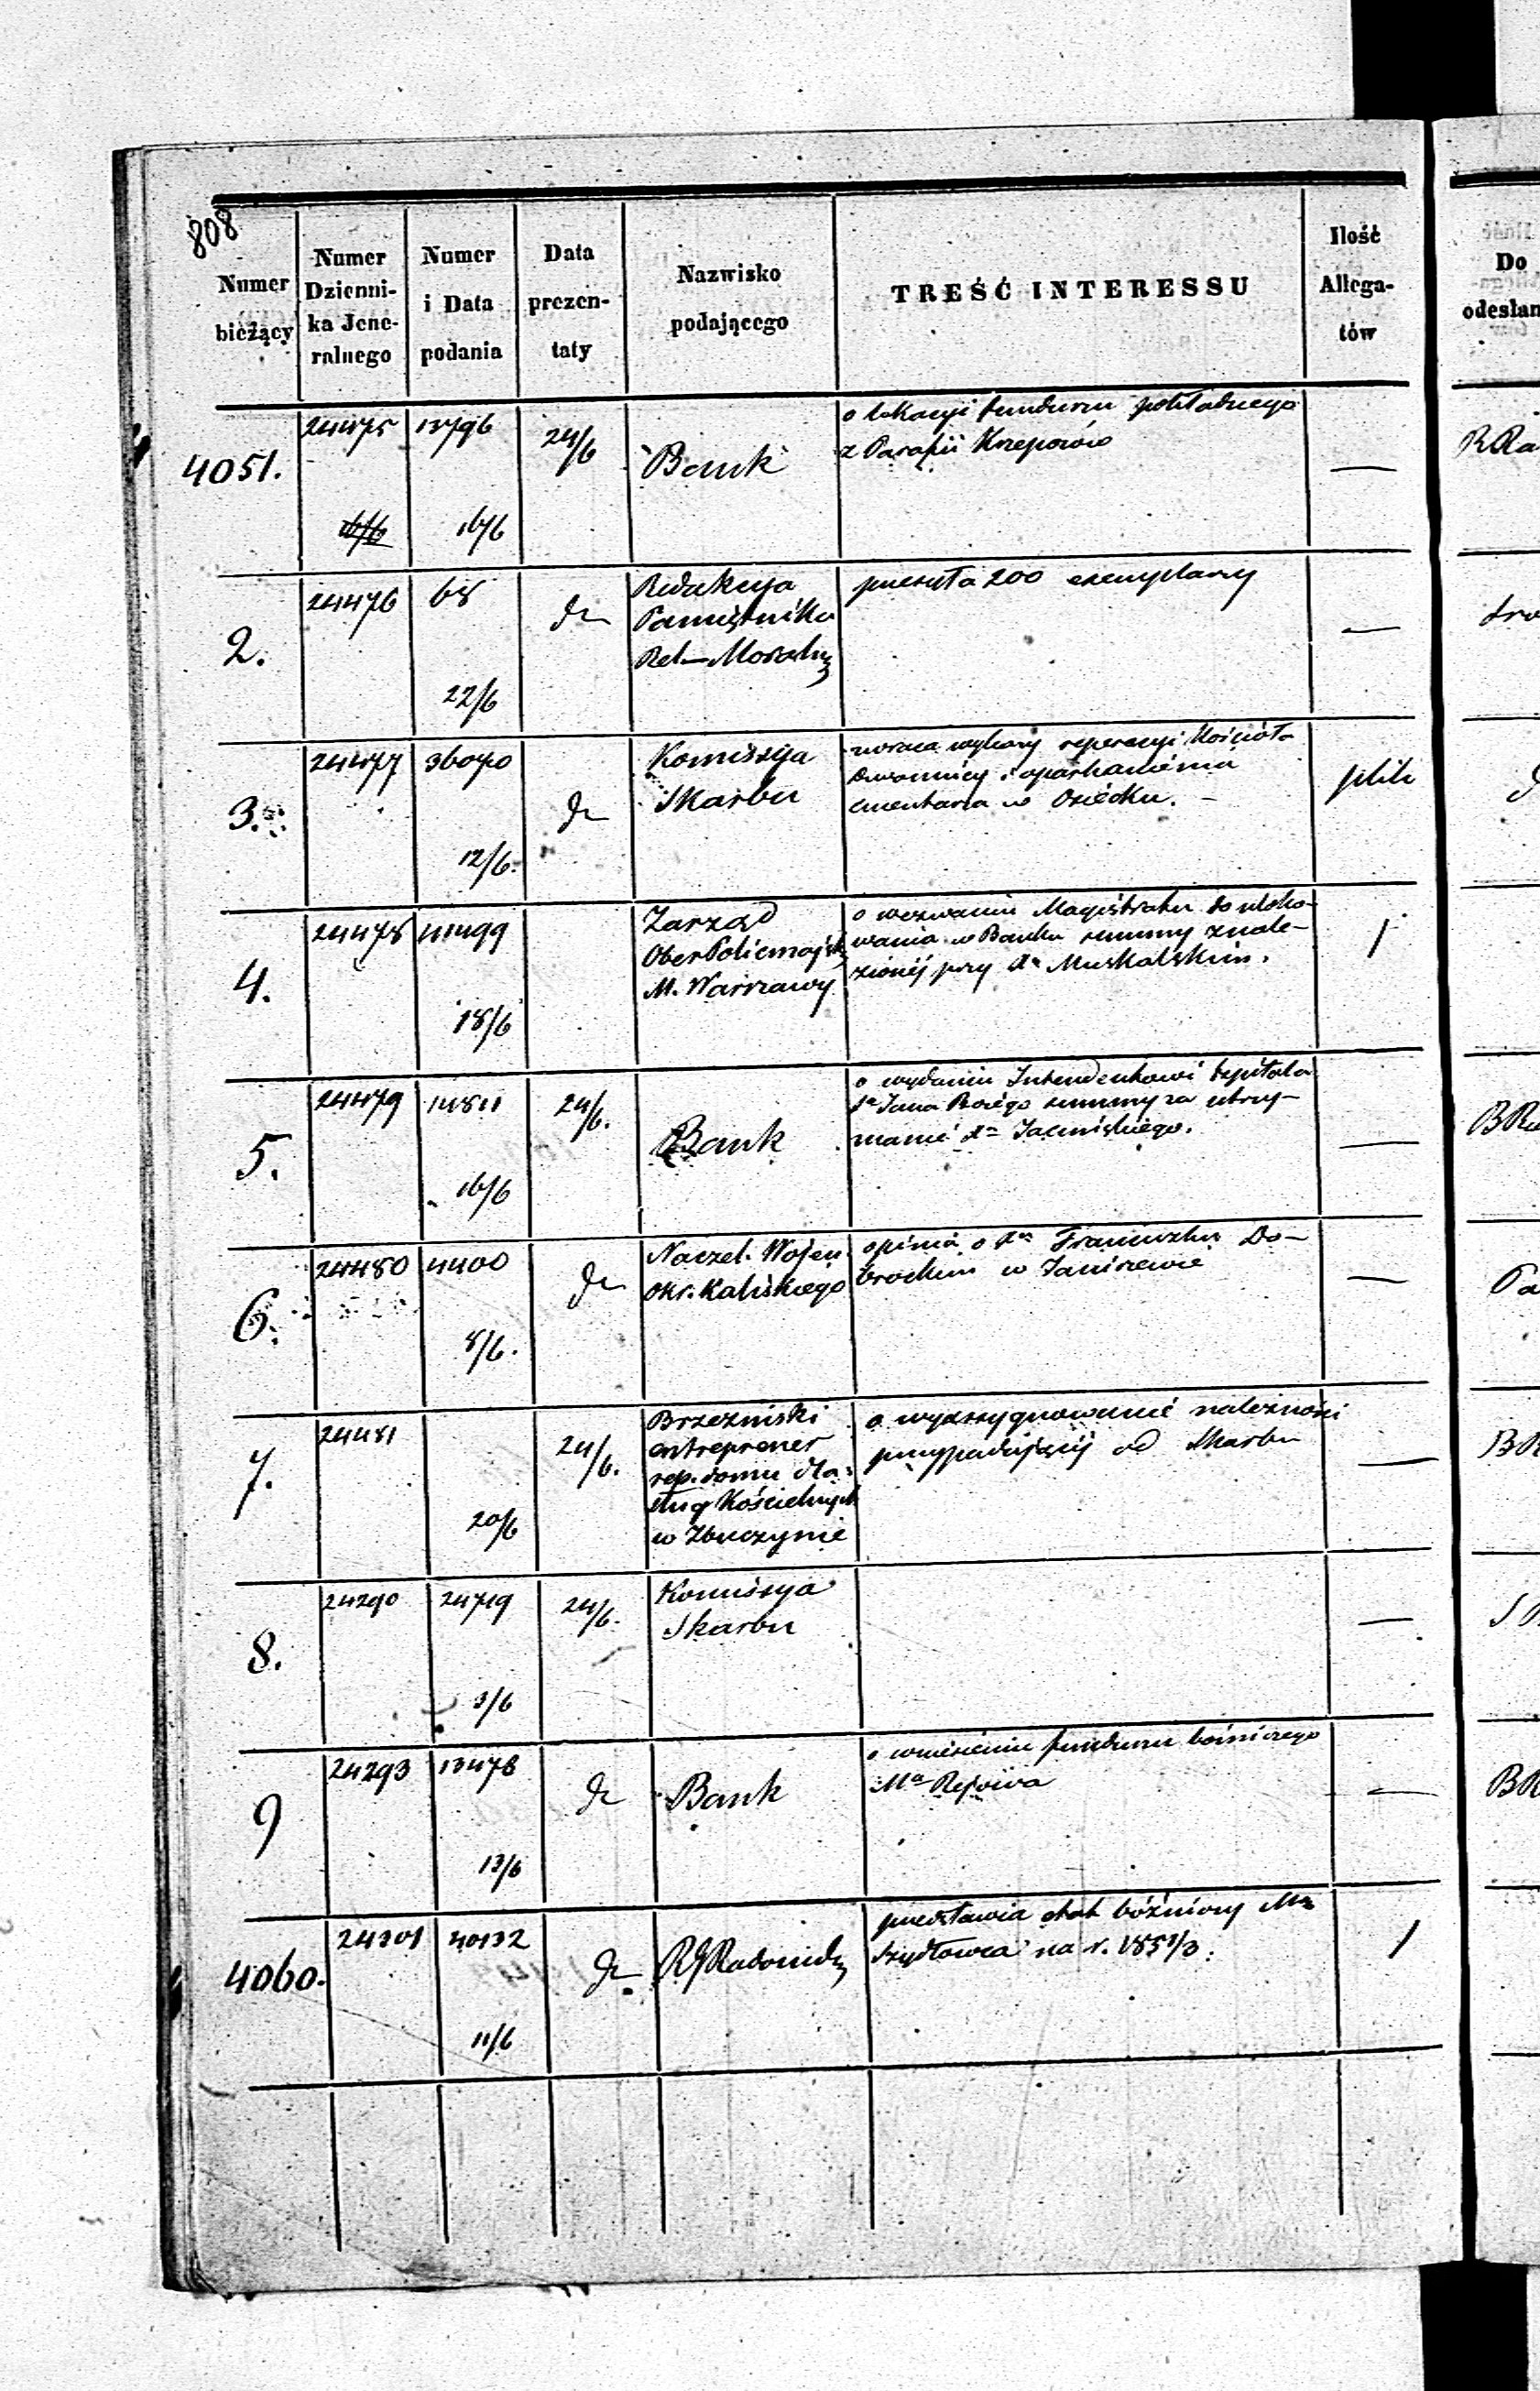 808
Numer
bieżący
Numer
Dzienni-
ka Jene-
ralnego
Numer
i Data
podania
Data
prezen-
taty
Nazwisko
podającego
TREŚĆ INTERESSU
Ilość
Allega-
tów
Do
odesłan
4051.
24475
13796
16/6
24/6
Bank
o lokacyi funduszu pokładnego
z Parafii Krzeporów
—
2.
24476
68
22/6
dn
Redakcya
Pamiętnika
Rel—Moraln
przesyła 200 exemplarzy
—
3.
24477
36070
12/6.
dn
Komissya
Skarbu
zwraca wykazy reperacyi Kościoła
dzwonnicy i oparkanienia
cmentarza w Osiecku. —
plik
4.
24478
18/6
Zarząd
OberPolicmajst
M. Warszawy
o wezwanie Magistratu do uloko-
wania w Banku summy znale-
zionéj przy Xn Muskalskim.
1
5.
24479
14811
16/6
24/6.
Bank
o wydaniu Intendentowi Szpitala
Sn Jana Bożego summy za utrzy-
manie Xn Jacuńskiego.
—
6.
24480
4400
8/6.
dn
Naczel. Wojen
okr. Kaliskiego
opinia o Xn Franciszku Do-
brockim w Janiszewie
—
7.
24481
20/6
24/6.
Brzeziński
entreprener
rep. domu dla
sług Kościelnych
w Zbuczynie
o wyassygnowanie należności
przypadającéj od Skarbu
—
8.
24290
24719
3/6
24/6.
Komissya
Skarbu
—
9
24293
13478
13/6
dn
Bank
o wniesieniu funduszu bóżniczego
Ma Rejowca
—
4060.
24301
40132
11/6
dn
RGRadomsk
przedstawia etat bóżniczy Ma
Szydłowca na r. 1851/3.
1